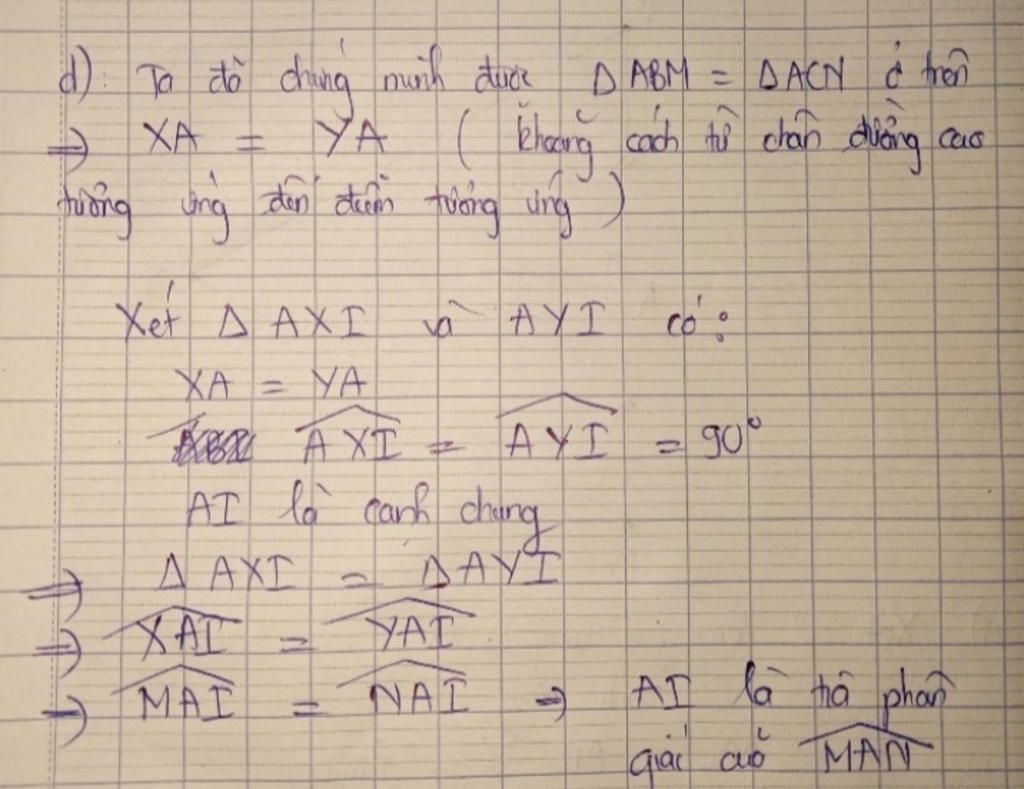 d) Ta đã chứng minh được Δ ABM = Δ ACN ở trên
⇒ XA = YA ( khoảng cách từ chân đường cao
tương ứng đến điểm tương ứng )
Xét Δ AXI và AYI có:
XA = YA
\widehat{AXI} = \widehat{AYI} = 90°
AI là cạnh chung
⇒ Δ AXI = Δ AYI
⇒ \widehat{XAI} = \widehat{YAI}
⇒ \widehat{MAI} = \widehat{NAI} ⇒ AI là tia phân
giác của \widehat{MAN}